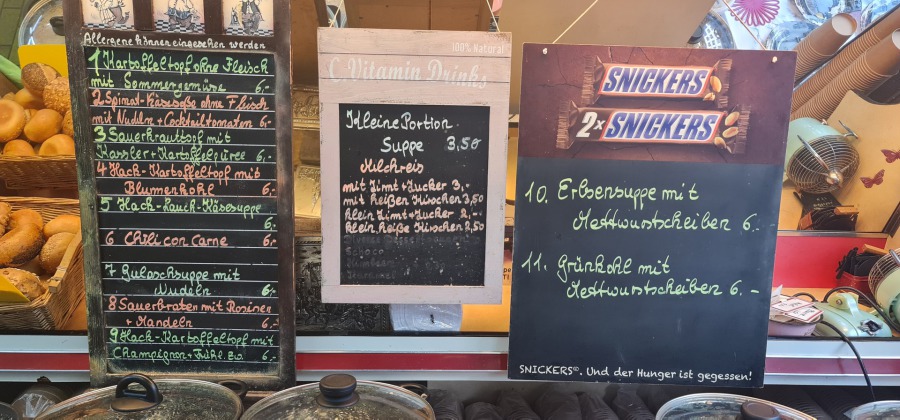 Allergene können eingesehen werden
1 Kartoffeltopf ohne Fleisch
mit Sommergemüse 6.-
2 Spinat-Käsesoße ohne Fleisch
mit Nudeln + Cocktailtomaten 6.-
3 Sauerkrauttopf mit
Kassler + Kartoffelpüree 6.-
4 Hack-Kartoffeltopf mit
Blumenkohl 6.-
5 Hack-Lauch-Käsesuppe
6.-
6 Chili con Carne 6.-
7 Gulaschsuppe mit
Nudeln 6.-
8 Sauerbraten mit Rosinen
+ Mandeln 6.-
9 Hack-Kartoffeltopf mit
Champignon + Frühl. Zw. 6.-
100% Natural
C. Vitamin Drinks
Kleine Portion
Suppe 3,50
Milchreis
mit Zimt + Zucker 3,-
mit heißen Kirschen 3,50
klein Zimt + Zucker 2,-
klein heiße Kirschen 2,50
SNICKERS
2x SNICKERS
10. Erbsensuppe mit
Mettwurstscheiben 6.-
11. Grünkohl mit
Mettwurstscheiben 6.-
SNICKERS®. Und der Hunger ist gegessen!